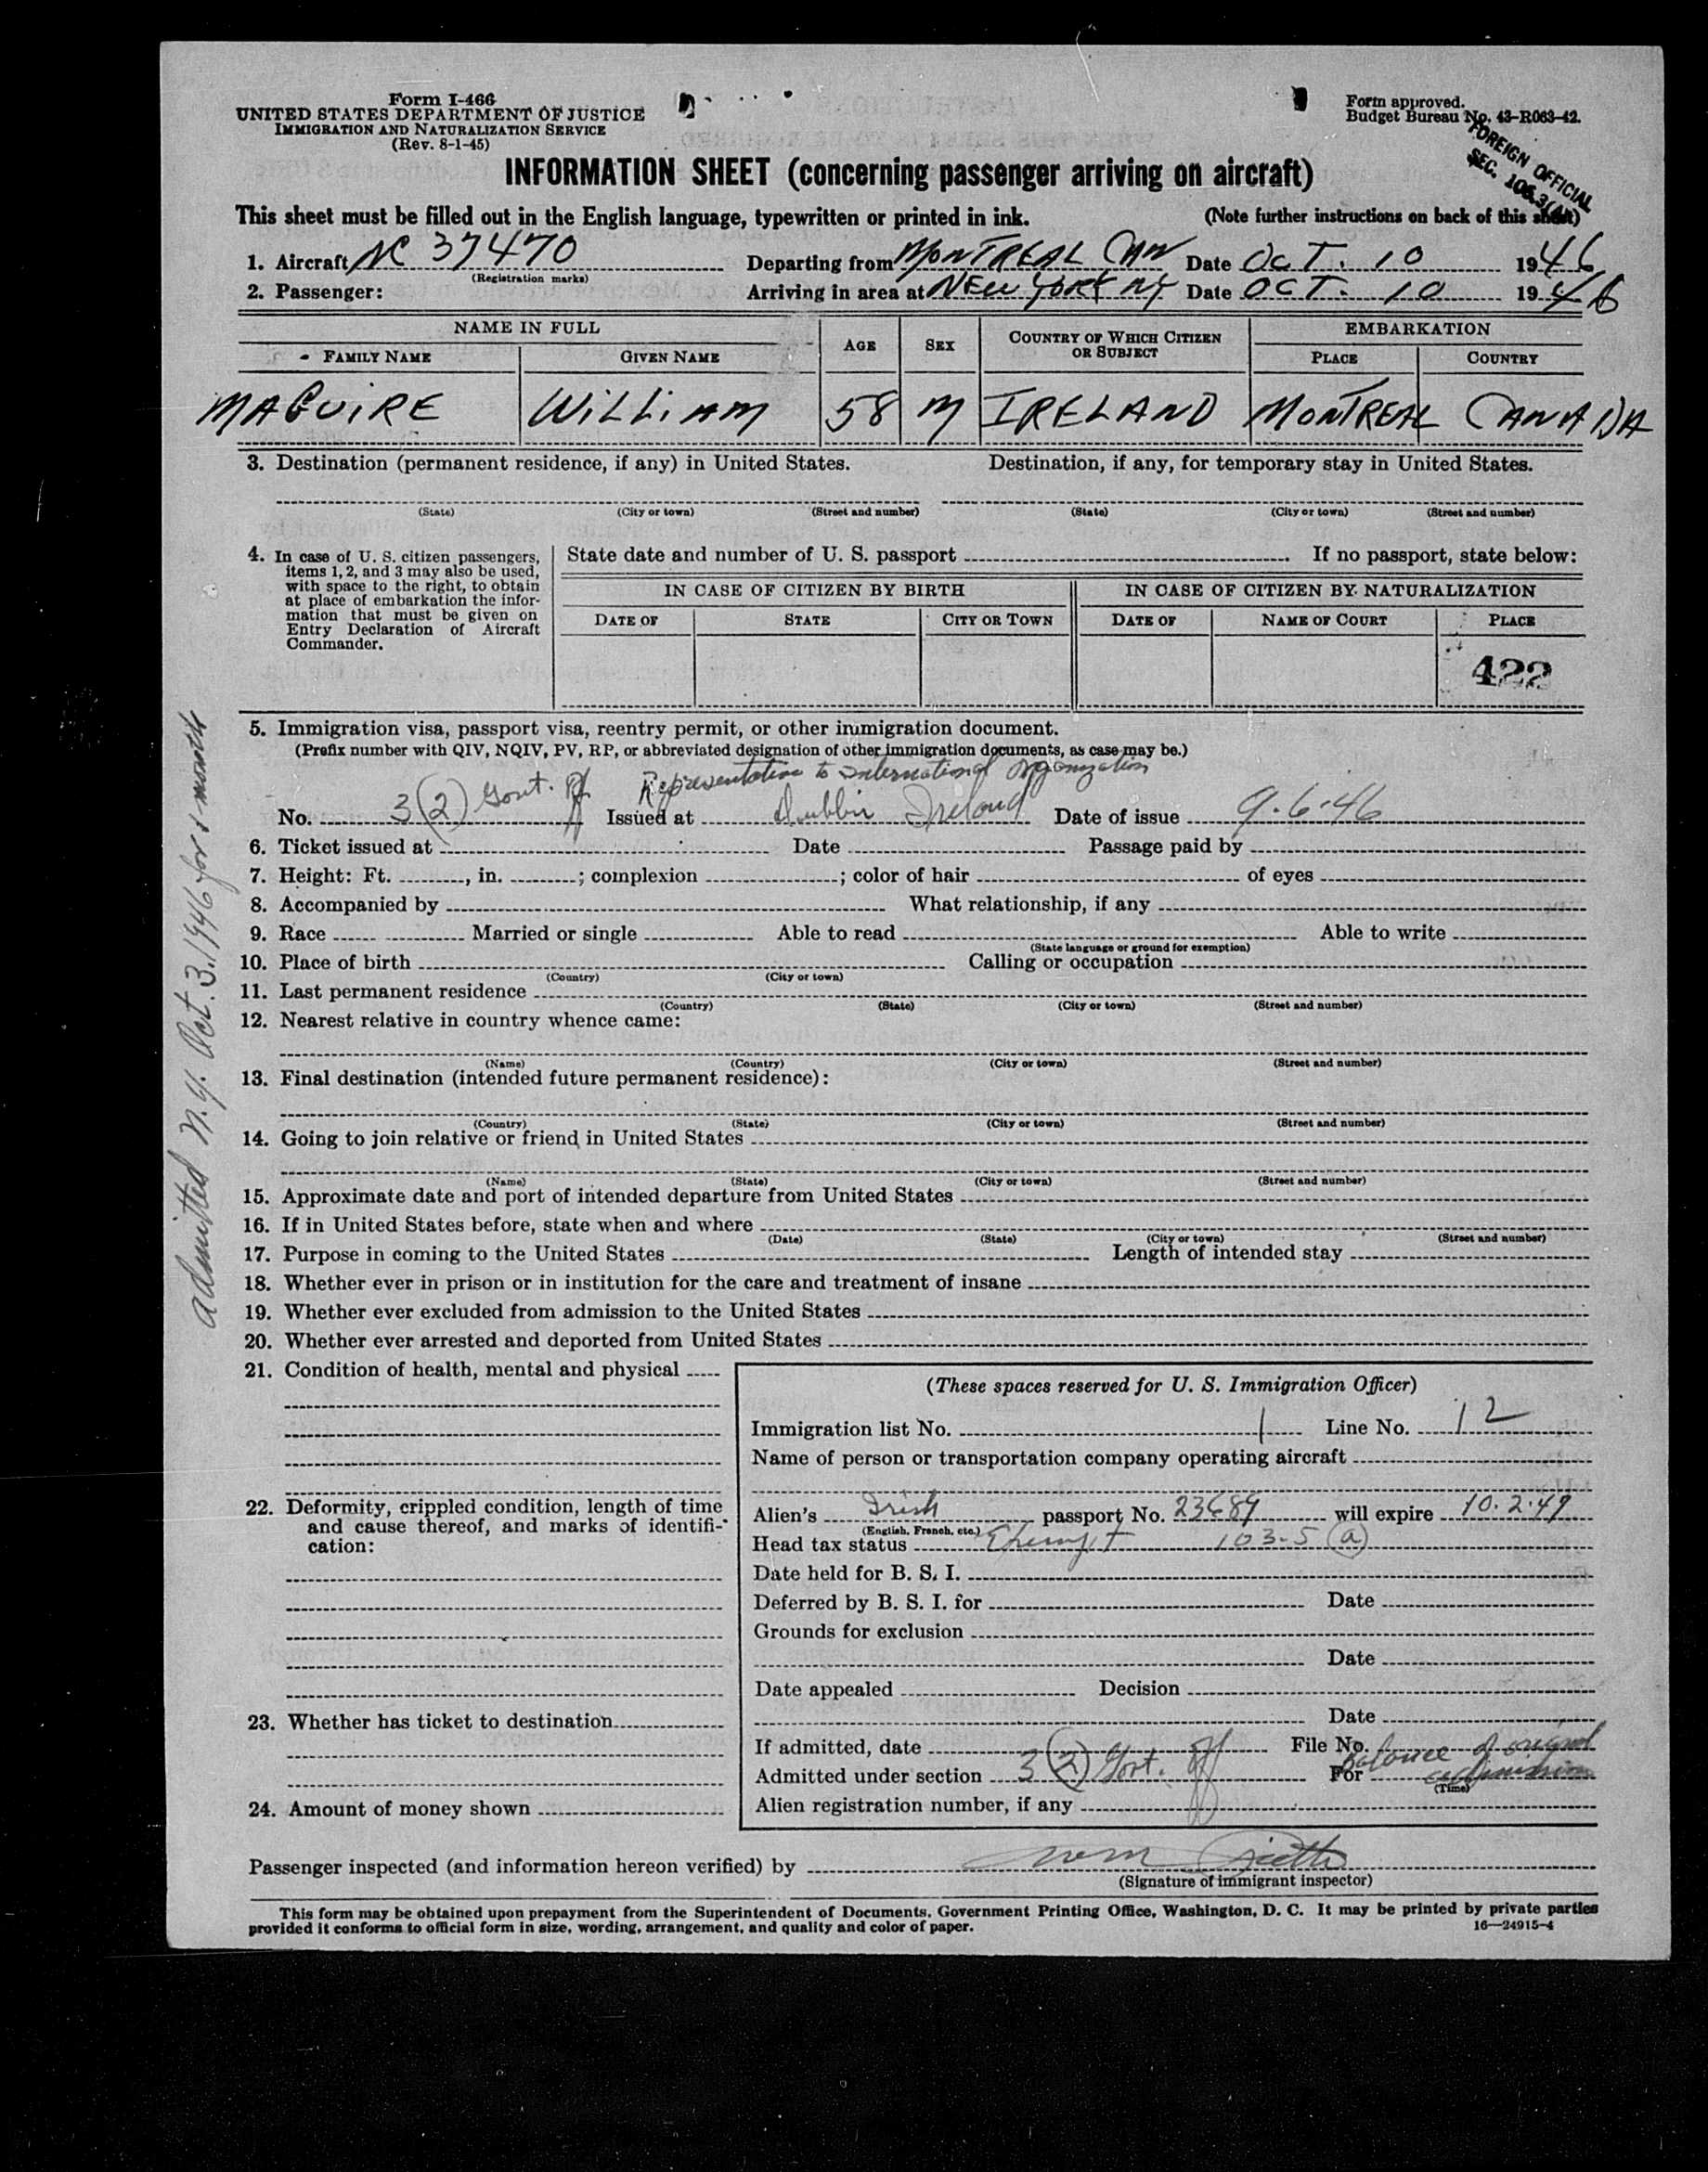 Form I-466
UNITED STATES DEPARTMENT OF JUSTICE
IMMIGRATION AND NATURALIZATION SERVICE
(Rev. 8-1-45)
Form approved.
Budget Bureau No. 43-R063-42.
FOREIGN OFFICIAL
SEC.
INFORMATION SHEET (concerning passenger arriving on aircraft)
This sheet must be filled out in the English language, typewritten or printed in ink. (Note further instructions on back of this sheet)
1. Aircraft NC 37470 Departing from MONTREAL CAN Date OCT. 10 1946
(Registration marks)
2. Passenger: Arriving in area at NEW YORK NY Date OCT. 10 1946
NAME IN FULL AGE SEX COUNTRY OF WHICH CITIZEN OR SUBJECT EMBARKATION
FAMILY NAME GIVEN NAME PLACE COUNTRY
MAGUIRE WILLIAM 58 M IRELAND MONTREAL CANADA
3. Destination (permanent residence, if any) in United States. Destination, if any, for temporary stay in United States.
(State) (City or town) (Street and number) (State) (City or town) (Street and number)
4. In case of U. S. citizen passengers,
items 1, 2, and 3 may also be used,
with space to the right, to obtain
at place of embarkation the infor-
mation that must be given on
Entry Declaration of Aircraft
Commander.
State date and number of U. S. passport If no passport, state below:
IN CASE OF CITIZEN BY BIRTH IN CASE OF CITIZEN BY NATURALIZATION
DATE OF STATE CITY OR TOWN DATE OF NAME OF COURT PLACE
422
5. Immigration visa, passport visa, reentry permit, or other immigration document.
(Prefix number with QIV, NQIV, PV, RP, or abbreviated designation of other immigration documents, as case may be.)
Representative to International Organization
No. 3(2) Govt. Off Issued at Dublin Ireland Date of issue 9-6-46
6. Ticket issued at Date Passage paid by
7. Height: Ft. , in. ; complexion ; color of hair of eyes
8. Accompanied by What relationship, if any
9. Race Married or single Able to read Able to write
(State language or ground for exemption)
10. Place of birth Calling or occupation
(Country) (City or town)
11. Last permanent residence
(Country) (State) (City or town) (Street and number)
12. Nearest relative in country whence came:
(Name) (Country) (City or town) (Street and number)
13. Final destination (intended future permanent residence):
(Country) (State) (City or town) (Street and number)
14. Going to join relative or friend in United States
(Name) (State) (City or town) (Street and number)
15. Approximate date and port of intended departure from United States
16. If in United States before, state when and where
(Date) (State) (City or town) (Street and number)
17. Purpose in coming to the United States Length of intended stay
18. Whether ever in prison or in institution for the care and treatment of insane
19. Whether ever excluded from admission to the United States
20. Whether ever arrested and deported from United States
Admitted N.Y. Oct. 3, 1946 for
21. Condition of health, mental and physical
22. Deformity, crippled condition, length of time
and cause thereof, and marks of identifi-
cation:
23. Whether has ticket to destination
24. Amount of money shown
(These spaces reserved for U. S. Immigration Officer)
Immigration list No. 1 Line No. 12
Name of person or transportation company operating aircraft
Alien's Irish passport No. 23689 will expire 10.2.49
(English, French, etc.)
Head tax status Exempt 103-5 (a)
Date held for B. S. I.
Deferred by B. S. I. for Date
Grounds for exclusion
Date
Date appealed Decision
Date
If admitted, date File No.
Balance of original
Admitted under section 3(2) Govt. Off For admission
(Time)
Alien registration number, if any
Passenger inspected (and information hereon verified) by
(Signature of immigrant inspector)
This form may be obtained upon prepayment from the Superintendent of Documents, Government Printing Office, Washington, D. C. It may be printed by private parties
provided it conforms to official form in size, wording, arrangement, and quality and color of paper. 16—24915-4